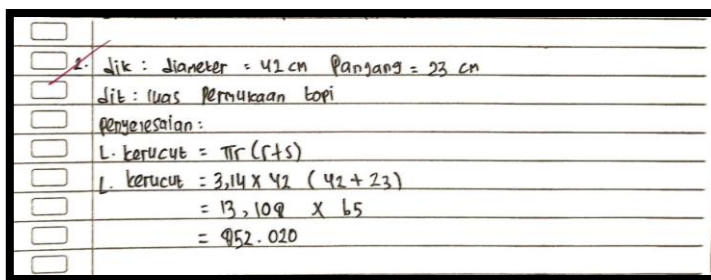 2. dik : diameter = 42 cm Panjang = 23 cm
dit : luas Permukaan topi
Penyelesaian :
L. kerucut = πr (r+s)
L. kerucut = 3,14 x 42 ( 42 + 23 )
= 13,108 x 65
= 852.020